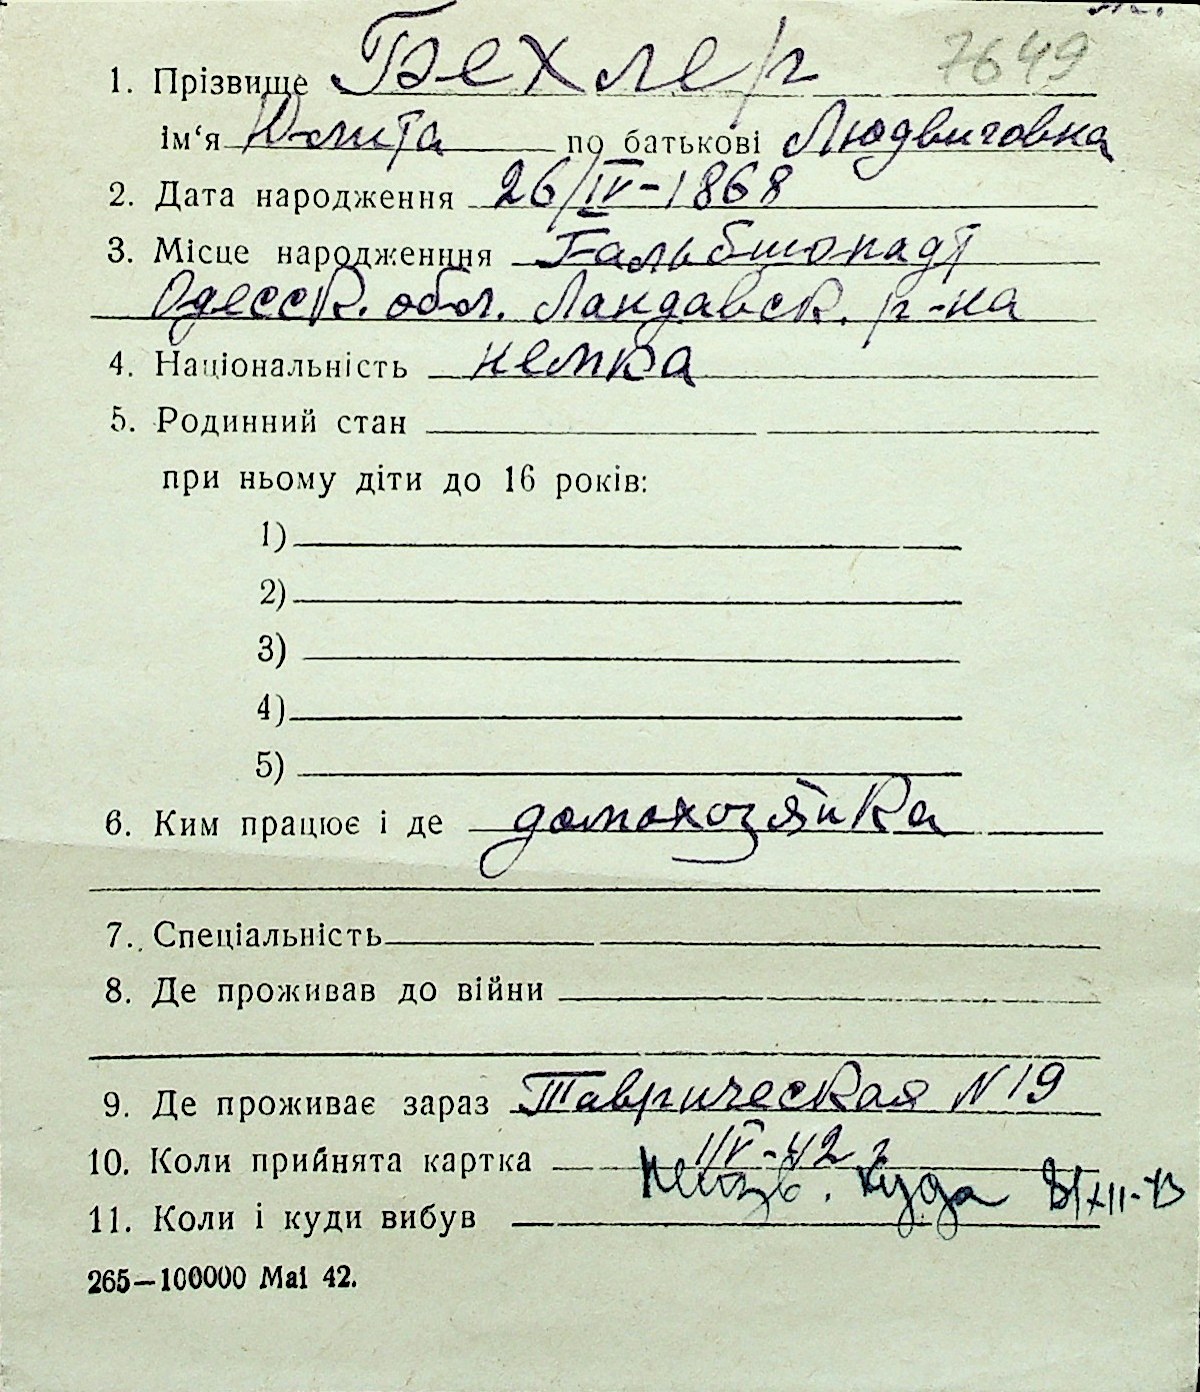 7649
1. Прізвище Бехлер
ім‘я Юлита по батькові Людвиговна
2. Дата народження 26/IV-1868
3. Місце народженння Гальбштадт
Одесск. обл. Ландавск. р-на
4. Національність немка
5. Родинний стан
при ньому діти до 16 років:
1)
2)
3)
4)
5)
6. Ким працює і де домохозяйка
7. Спеціальність
8. Де проживав до війни
9. Де проживає зараз Таврическая N 19
10. Коли прийнята картка 1/V-42 г
11. Коли і куди вибув неизв. куда
265—100000 Маі 42.